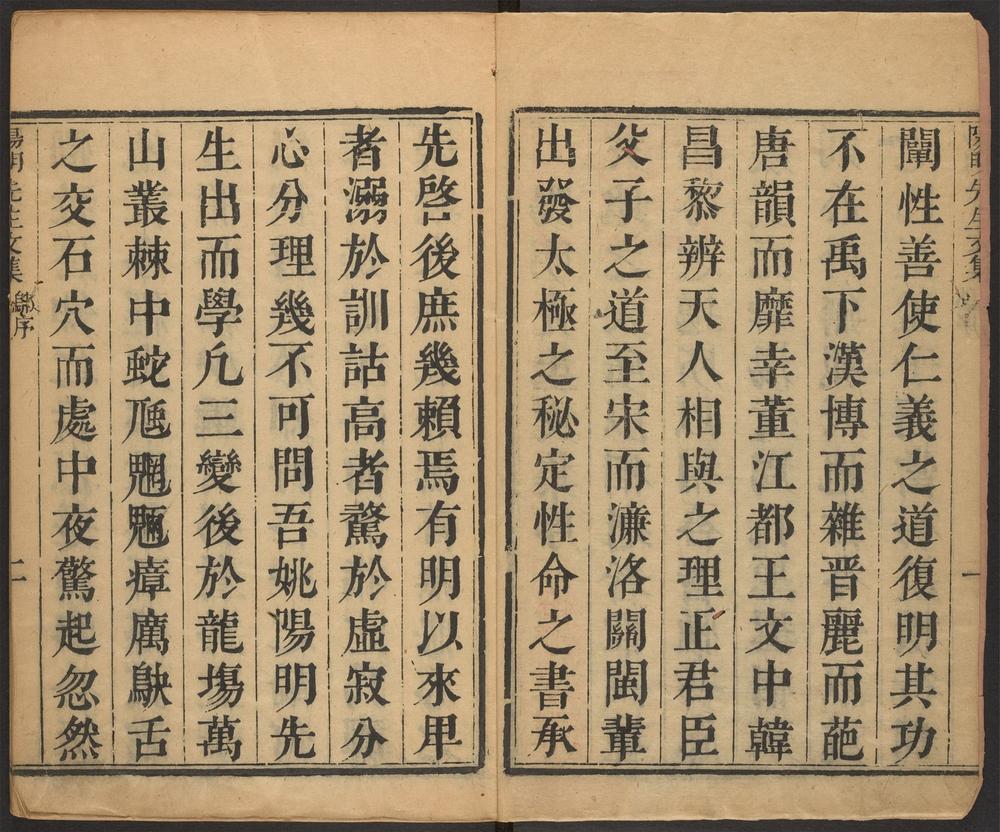 闡性善使仁義之道復明其功
不在禹下漢博而雜晋麗而葩
唐韻而靡幸董江都王文中韓
昌黎辨天人相與之理正君臣
父子之道至宋而濂洛關閩輩
出發太極之秘定性命之書承
先啓後庶幾賴焉有明以來卑
者溺於訓詁高者驚於虛寂分
心分理幾不可問吾姚陽明先
生出而學凢三變後於龍塲萬
山叢棘中蛇虺魍魎瘴厲鴃舌
之交石穴而處中夜驚起忽然
陽明先生文集
一
陽明先生文集
序
二